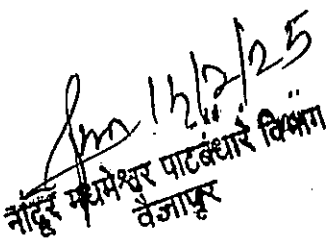 12/2/25
नांदूर मधमेश्वर पाटबंधारे विभाग
वैजापूर